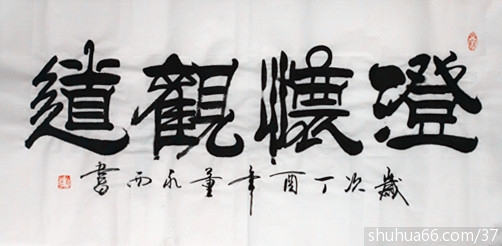 澄懷觀道
歲次丁酉年董永西書
shuhua66.com/37